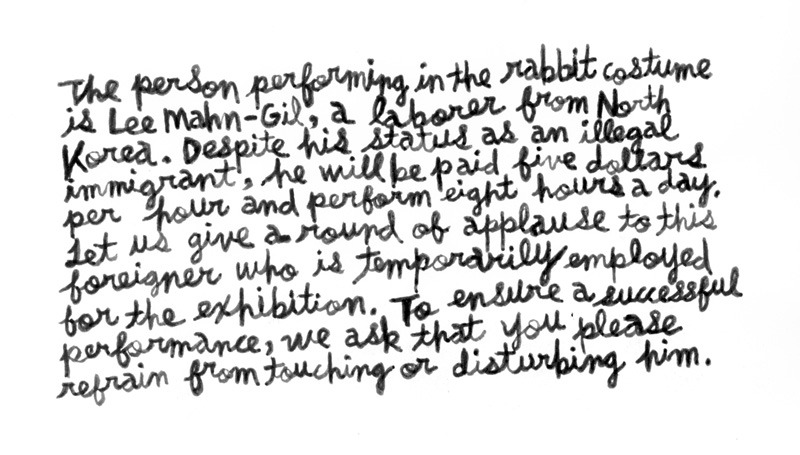 The person performing in the rabbit costume
is Lee Mahn-Gil, a laborer from North
Korea. Despite his status as an illegal
immigrant, he will be paid five dollars
per hour and perform eight hours a day.
Let us give a round of applause to this
foreigner who is temporarily employed
for the exhibition. To ensure a successful
performance, we ask that you please
refrain from touching or disturbing him.